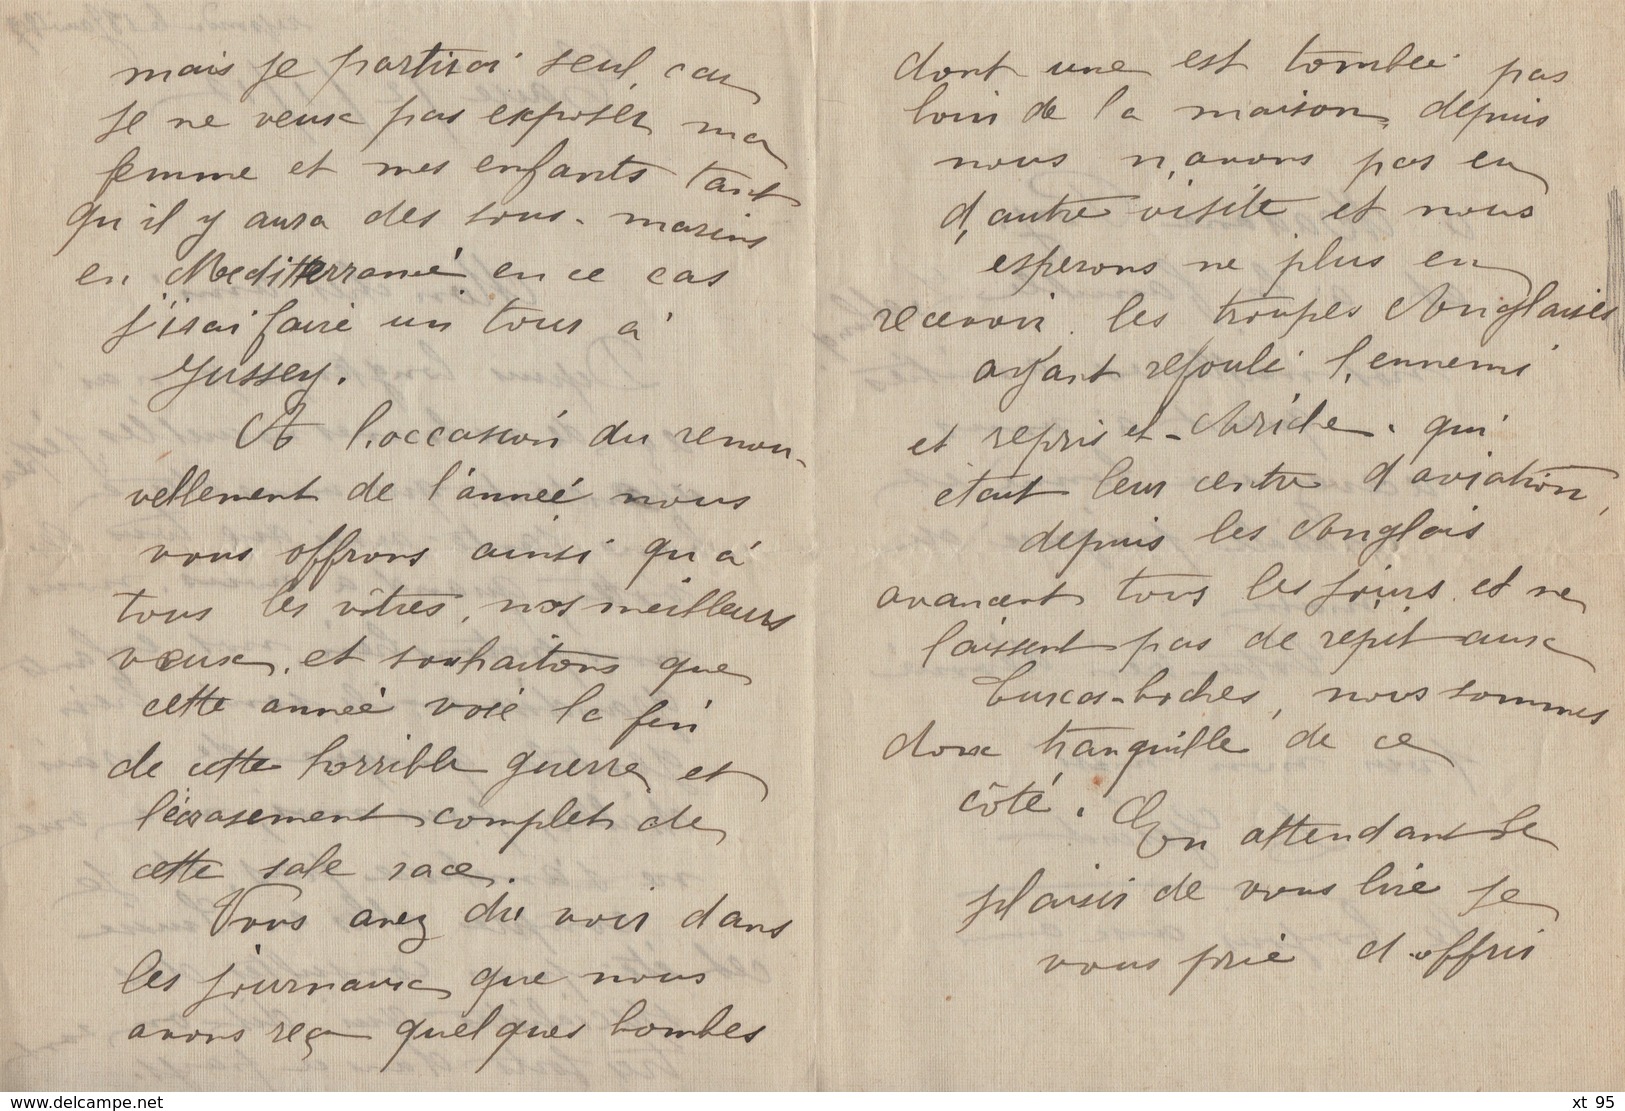 mais je partirai seul, car
je ne veux pas exposer ma
femme et mes enfants tant
qu'il y aura des sous-marins
en Mediterranneé en ce cas
j'irai faire un tour à
Jussey.
A l'occasion du renou-
vellement de l'anneé nous
vous offrons ainsi qu'à
tous les vôtres, nos meilleurs
vœux, et souhaitons que
cette anneé voie la fin
de cette horrible guerre et
l'écrasement complet de
cette sale race.
Vous avez du voir dans
les journaux que nous
avons reçu quelques bombes
dont une est tombeé pas
loin de la maison, depuis
nous n'avons pas eu
d'autre visite et nous
esperons ne plus en
recevoir. les troupes Anglaises
ayant refoulé l'ennemi
et repris el-Ariche. qui
était leur centre d'aviation,
depuis les Anglais
avancent tous les jours et ne
laissent pas de répit aux
turcos-boches, nous sommes
donc tranquille de ce
côté. En attendant le
plaisir de vous lire je
vous prie d'offrir
www.delcampe.net
xt 95